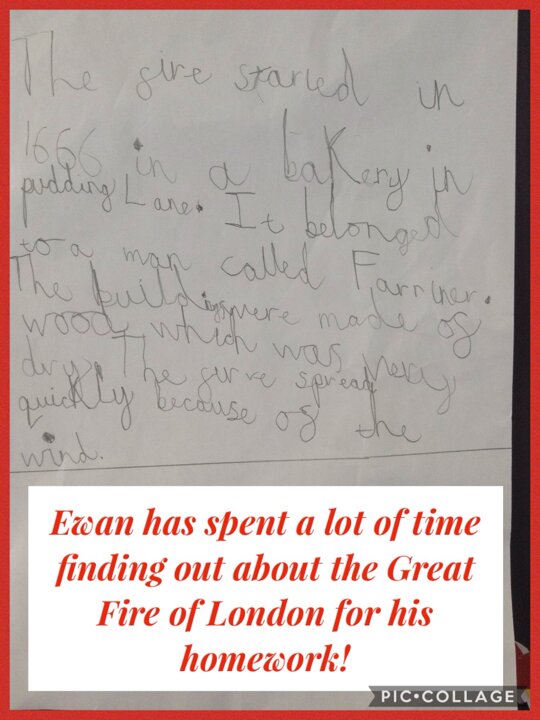 The fire started in
1666 in a bakery in
pudding Lane. It belonged
to a man called Farriner.
The buildings were made of
wood, which was very
dry. The fire spread
quickly because of the
wind.
Ewan has spent a lot of time
finding out about the Great
Fire of London for his
homework!
PIC•COLLAGE